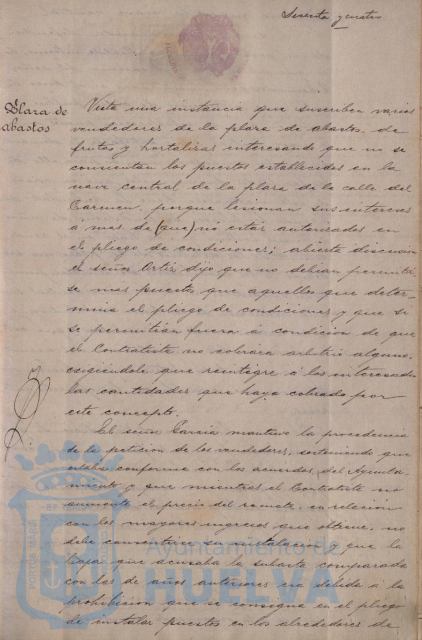 Sesenta y cuatro
Plaza de
abastos
Vista una instancia que suscriben varios
vendederes de la plaza de abastos, de
frutas y hortalizas interesando que no se
consientan los puestos establecidos en la
nave central de la plaza de la calle del
Carmen, porque lesionan sus intereses
á mas de (que) no estar autorizados en
el pliego de condiciones; abierta discusion
el señor Ortiz dijo que no debian permitir
se mas puestos que aquellos que deter-
mina el pliego de condiciones y que si
se permitian fuera á condición de que
el Contratista no cobrara arbitrio alguno,
exigiendole que reintegre á los interesados
las cantidades que haya cobrado por
este concepto.
El señor Garcia mantuvo la procedencia
de la peticion de los vendederes, sosteniendo que
estaba conforme con los acuerdos del Ayunta-
miento y que mientras el Contratista no
aumente el precio del remate, en relacion
con los mayores ingresos que obtiene, no
debe consentirse su instalacion y que la
baja que acusaba la subasta comparada
con las de años anteriores era debida á la
prohibicion que se consigna en el pliego
de instalar puestos en los alrededores de
Ayuntamiento de
HUELVA